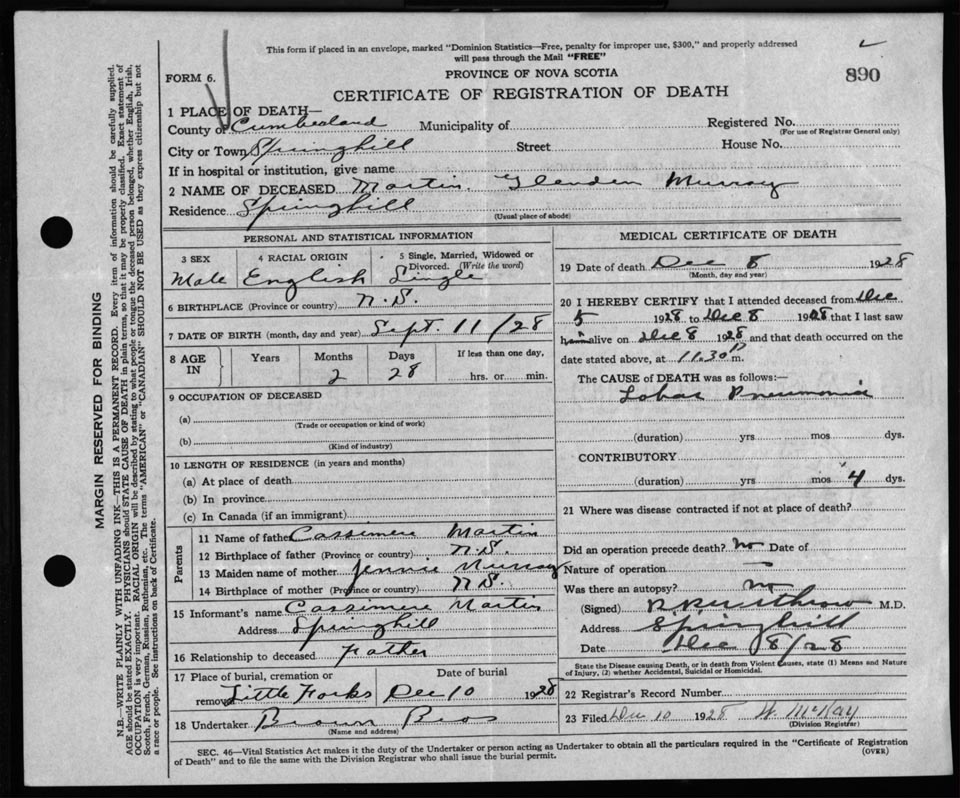 This form if placed in an envelope, marked "Dominion Statistics—Free, penalty for improper use, $300," and properly addressed
will pass through the Mail "FREE"
FORM 6.
PROVINCE OF NOVA SCOTIA
890
CERTIFICATE OF REGISTRATION OF DEATH
1 PLACE OF DEATH—
County of Cumberland Municipality of Registered No.
(For use of Registrar General only)
City or Town Springhill Street House No.
If in hospital or institution, give name
2 NAME OF DECEASED Martin, Glenden Murray
Residence Springhill
(Usual place of abode)
PERSONAL AND STATISTICAL INFORMATION
3 SEX 4 RACIAL ORIGIN 5 Single, Married, Widowed or
Divorced. (Write the word)
Male English Single
6 BIRTHPLACE (Province or country) N.S.
7 DATE OF BIRTH (month, day and year) Sept. 11/28
8 AGE IN Years Months Days If less than one day,
2 28 hrs. or min.
9 OCCUPATION OF DECEASED
(a)
(Trade or occupation or kind of work)
(b)
(Kind of industry)
10 LENGTH OF RESIDENCE (in years and months)
(a) At place of death
(b) In province
(c) In Canada (if an immigrant)
Parents
11 Name of father Cassimere Martin
12 Birthplace of father (Province or country) N.S.
13 Maiden name of mother Jennie Murray
14 Birthplace of mother (Province or country) N.S.
15 Informant's name Cassimere Martin
Address Springhill
16 Relationship to deceased Father
17 Place of burial, cremation or Date of burial
removal Little Forks Dec 10 1928
18 Undertaker Brown Bros
(Name and address)
MEDICAL CERTIFICATE OF DEATH
19 Date of death Dec 8 1928
(Month, day and year)
20 I HEREBY CERTIFY that I attended deceased from Dec
5 1928 to Dec 8 1928 that I last saw
him alive on Dec 8 1928 and that death occurred on the
date stated above, at 11.30 P m.
The CAUSE of DEATH was as follows:—
Lobar Pneumonia
(duration) yrs mos dys.
CONTRIBUTORY
(duration) yrs mos 4 dys.
21 Where was disease contracted if not at place of death?
Did an operation precede death? no Date of
Nature of operation —
Was there an autopsy? no
(Signed) M.D.
Address Springhill
Date Dec 8/28
State the Disease causing Death, or in death from Violent Causes, state (1) Means and Nature
of Injury, (2) whether Accidental, Suicidal or Homicidal.
22 Registrar's Record Number
23 Filed Dec 10 1928 W McKay
(Division Registrar)
SEC. 46—Vital Statistics Act makes it the duty of the Undertaker or person acting as Undertaker to obtain all the particulars required in the "Certificate of Registration
of Death" and to file the same with the Division Registrar who shall issue the burial permit.
(OVER)
MARGIN RESERVED FOR BINDING
N.B.—WRITE PLAINLY WITH UNFADING INK—THIS IS A PERMANENT RECORD. Every item of information should be carefully supplied.
AGE should be stated EXACTLY. PHYSICIANS should STATE CAUSE OF DEATH in plain terms, so that it may be properly classified. Exact statement of
OCCUPATION is very important. RACIAL ORIGIN will be described by stating to what people or tongue the deceased person belonged, whether English, Irish,
Scotch, French, German, Russian, Ruthenian, etc. The terms "AMERICAN" or "CANADIAN" SHOULD NOT BE USED as they express citizenship but not
a race or people. See instructions on back of Certificate.